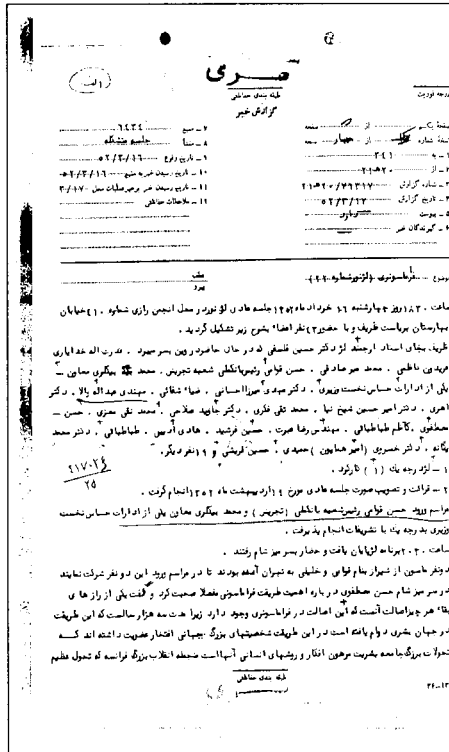 الف
سری
طبقه بندی حفاظتی
گزارش خبر
درجه فوریت
صفحه یکم از صفحه
نسخه شماره از چهار نسخه
۱ - به ۳۴۱
۲ - از ۲۰ ه ۲۱
۳ - شماره گزارش ۲۱ ه ۲۰/۷۹۳۱۷
۴ - تاریخ گزارش ۵۲/۳/۱۷
۵ - پیوست ندارد
۶ - گیرندگان خبر
۷ - منبع ۶۴۳۴
۸ - منشا جلسه متشکله
۹ - تاریخ وقوع ۵۲/۳/۱۶
۱۰ - تاریخ رسیدن خبر به منبع ۵۲/۳/۱۶
۱۱ - تاریخ رسیدن خبر به رهبر عملیات محل ۳/۱۷
۱۲ - ملاحظات حفاظتی
موضوع فراماسونری (لژ نور شماره ۲۲)
ساعت ۱۸۳۰ روز چهارشنبه ۱۶ خرداد ماه ۱۳۵۲ جلسه عادی لژ نور در محل انجمن رازی شماره ۴۱ خیابان
بهارستان بریاست ظریف و با حضور ۴۲ نفر اعضاء بشرح زیر تشکیل گردید .
ظریف بجای استاد ارجمند لژ دکتر حسین فلسفی که در حال حاضر در وین بسر میبرد . قدرت اله خدایاری
فریدون ناظمی . محمد میرصادقی . حسن قوامی رئیس بانک ملی شعبه تجریش . محمد بیدگلی معاون -
یکی از ادارات حساس نخست وزیری . دکتر مهدی میرزا حسابی . ضیاء شقاقی . مهندس عبداله والا . دکتر
اهری . دکتر امیر حسین شیخ نیا . محمد تقی فکری . دکتر جاوید صلاحی . محمد تقی معزی . حسن -
مصطفوی . کاظم طباطبائی . مهندس رضا عبرت . حسین فرشید . هادی ادیبی . طباطبائی . دکتر محمد
یگانه . دکتر خسروی (امیر همایون) حمیدی . حسین قریشی و ۱۹ نفر دیگر .
۱ - لژ درجه یک (۱) کار کرد .
۲ - قرائت و تصویب صورت جلسه عادی مورخ ۱۹ اردیبهشت ماه ۱۳۵۲ انجام گرفت .
مراسم ورود حسن قوامی رئیس شعبه بانک ملی (تجریش) و محمد بیدگلی معاون یکی از ادارات حساس نخست
وزیری بدرجه یک با تشریفات انجام پذیرفت .
ساعت ۲۰۳۰ برنامه لژ پایان یافت و حضار بسر میز شام رفتند .
دو نفر ماسون از شیراز بنام قوامی و خلیلی به تهران آمده بودند تا در مراسم ورود این دو نفر شرکت نمایند
در سر میز شام حسن مصطفوی در باره اهمیت طریقت فراماسونی مفصلا صحبت کرد و گفت یکی از رازهای
بقاء هر چیز اصالت آنست که این اصالت در فراماسونری وجود دارد زیرا مدت سه هزار سال است که این طریقت
در جهان بشری دوام یافته است در این طریقت شخصیتهای بزرگ جهانی افتخار عضویت داشته اند که
تحولات بزرگ جامعه بشریت مرهون افکار و روشهای انسانی آنها است منجمله انقلاب بزرگ فرانسه که تحول عظیم
طبقه بندی حفاظتی
۳۶-۱۳